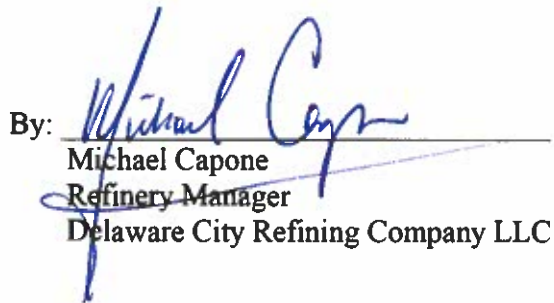 By: Michael Capone
Michael Capone
Refinery Manager
Delaware City Refining Company LLC